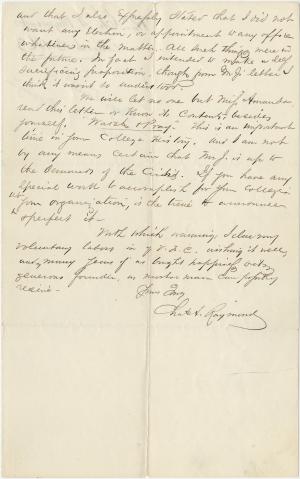 and that I also expressly stated that I did not
want any election, or appointment to any office
whatever in the matter. All such things were in
the future. In fact I intended to make a self
sacrificing proposition, though from Mr J's letter I
think it wasn't so understood.
You will let no one but Miss Amanda
read this letter or know its contents, besides
yourself. Watch & Pray. This is an important
time in your College history. And I am not
by any means certain that Mr J. is up to
the demands of the Crisis. If you have any
special work to accomplish for your College in
its organization, is the time to announce
& perfect it.
With which warning I close my
voluntary labors in y V. F. C. wishing it well,
and many years of as bright happiness, its
generous founder, as mortal man can
receive.
Yours Truly
Chas. A. Raymond